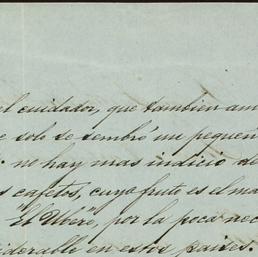 el cuidador, que tambien am
e solo se sembró un pequeñ
no hay mas indicio de
s cafetos, cuyo fruto es el ma
"El Ubero", por la poca acc
siderable en estos paises.